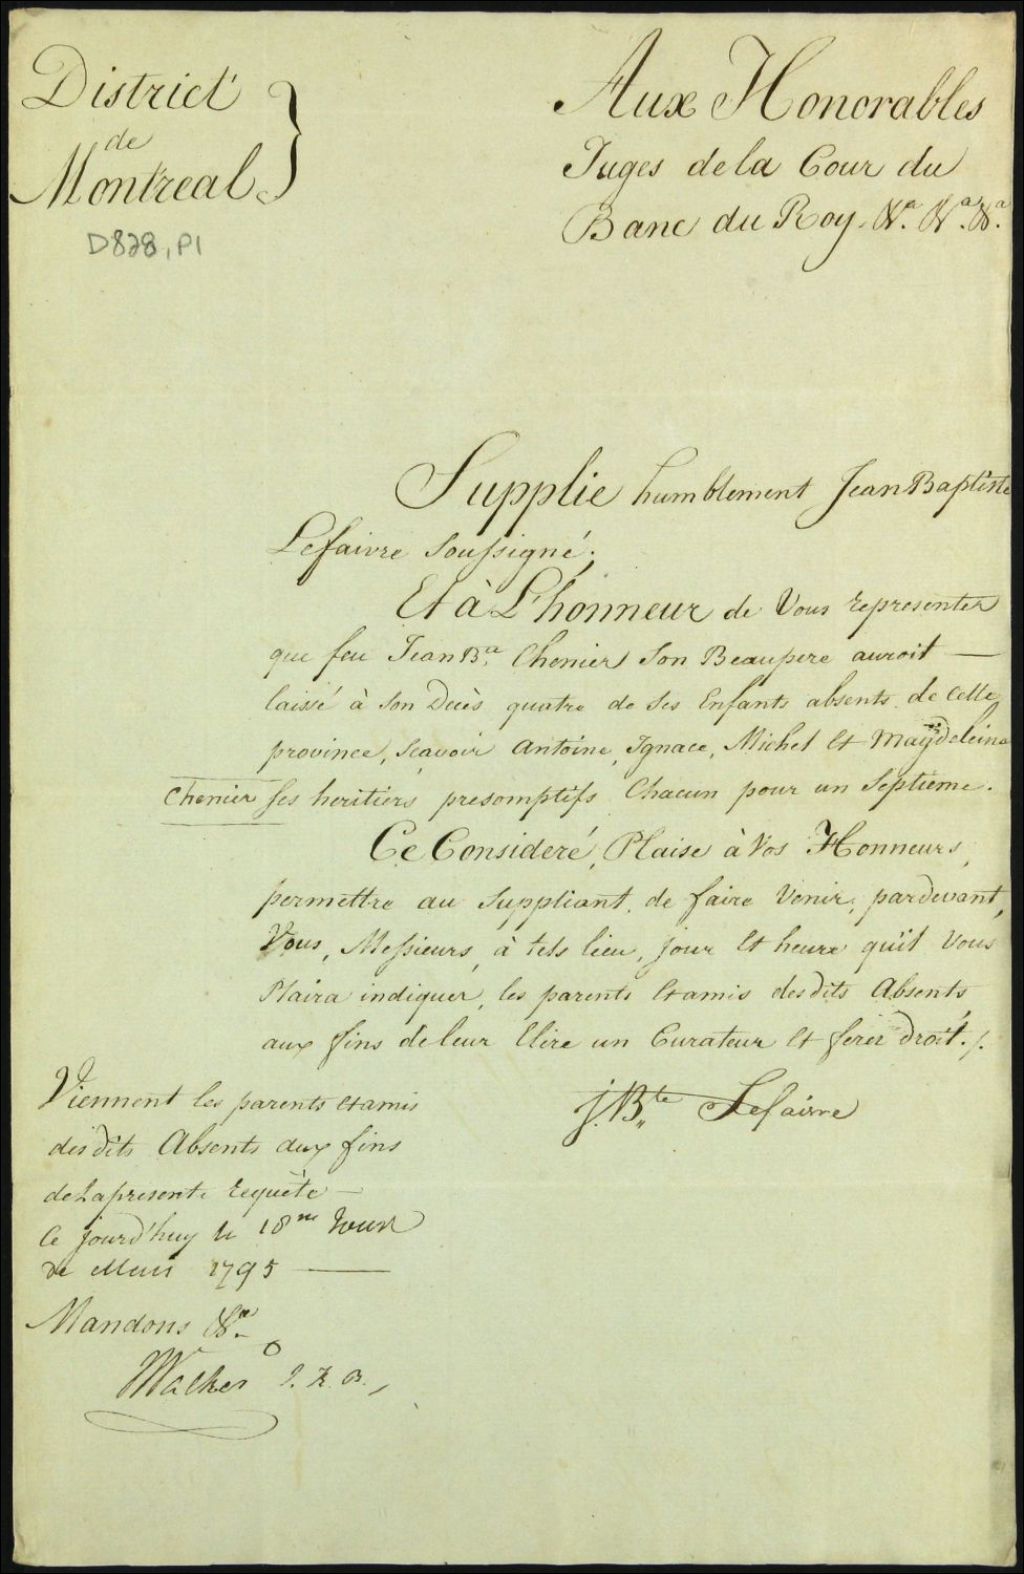 District
de
Montreal
D828, P1
Aux Honorables
Juges de la Cour du
Banc du Roy. &a. &a. &a.
Supplie humblement Jean Baptiste
Lefaivre Soussigné;
Et à L'honneur de Vous representer
que feu Jean Bte. Chenier Son Beaupere auroit —
laissé à Son Decès quatre de Ses Enfants absents de Cette
province, Scavoir Antoine, Ignace, Michel et Magdeleine
Chenier ses heritiers presomptifs Chacun pour un Septieme.
Ce Consideré, Plaise à Vos Honneurs,
permettre au Suppliant de faire Venir, pardevant,
Vous, Messieurs, à tels lieu, jour et heure qu'il Vous
Plaira indiquer, les parents et amis desdits Absents,
aux fins de leur Elire un Curateur et ferez droit. /.
J. Bte Lefaivre
Viennent les parents et amis
desdits Absents aux fins
de La presente requête —
Ce jourd'huy le 18me Jour
de 1795 —
Mandons &a.
JWalker J. K. B.,